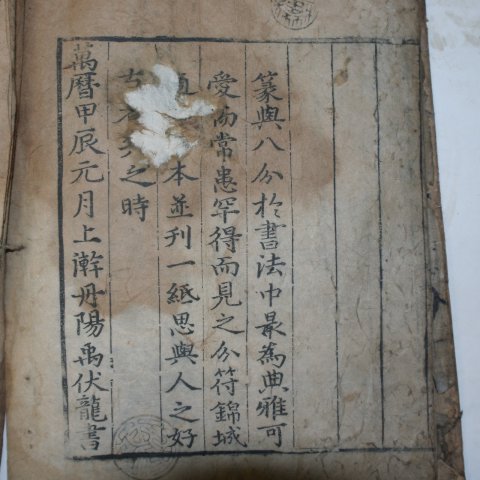 篆與八分於書法中最爲典雅可
愛而常患罕得而見之分符錦城
本並刊一紙思與人之好
古 之時
萬曆甲辰元月上澣丹陽禹伏龍書